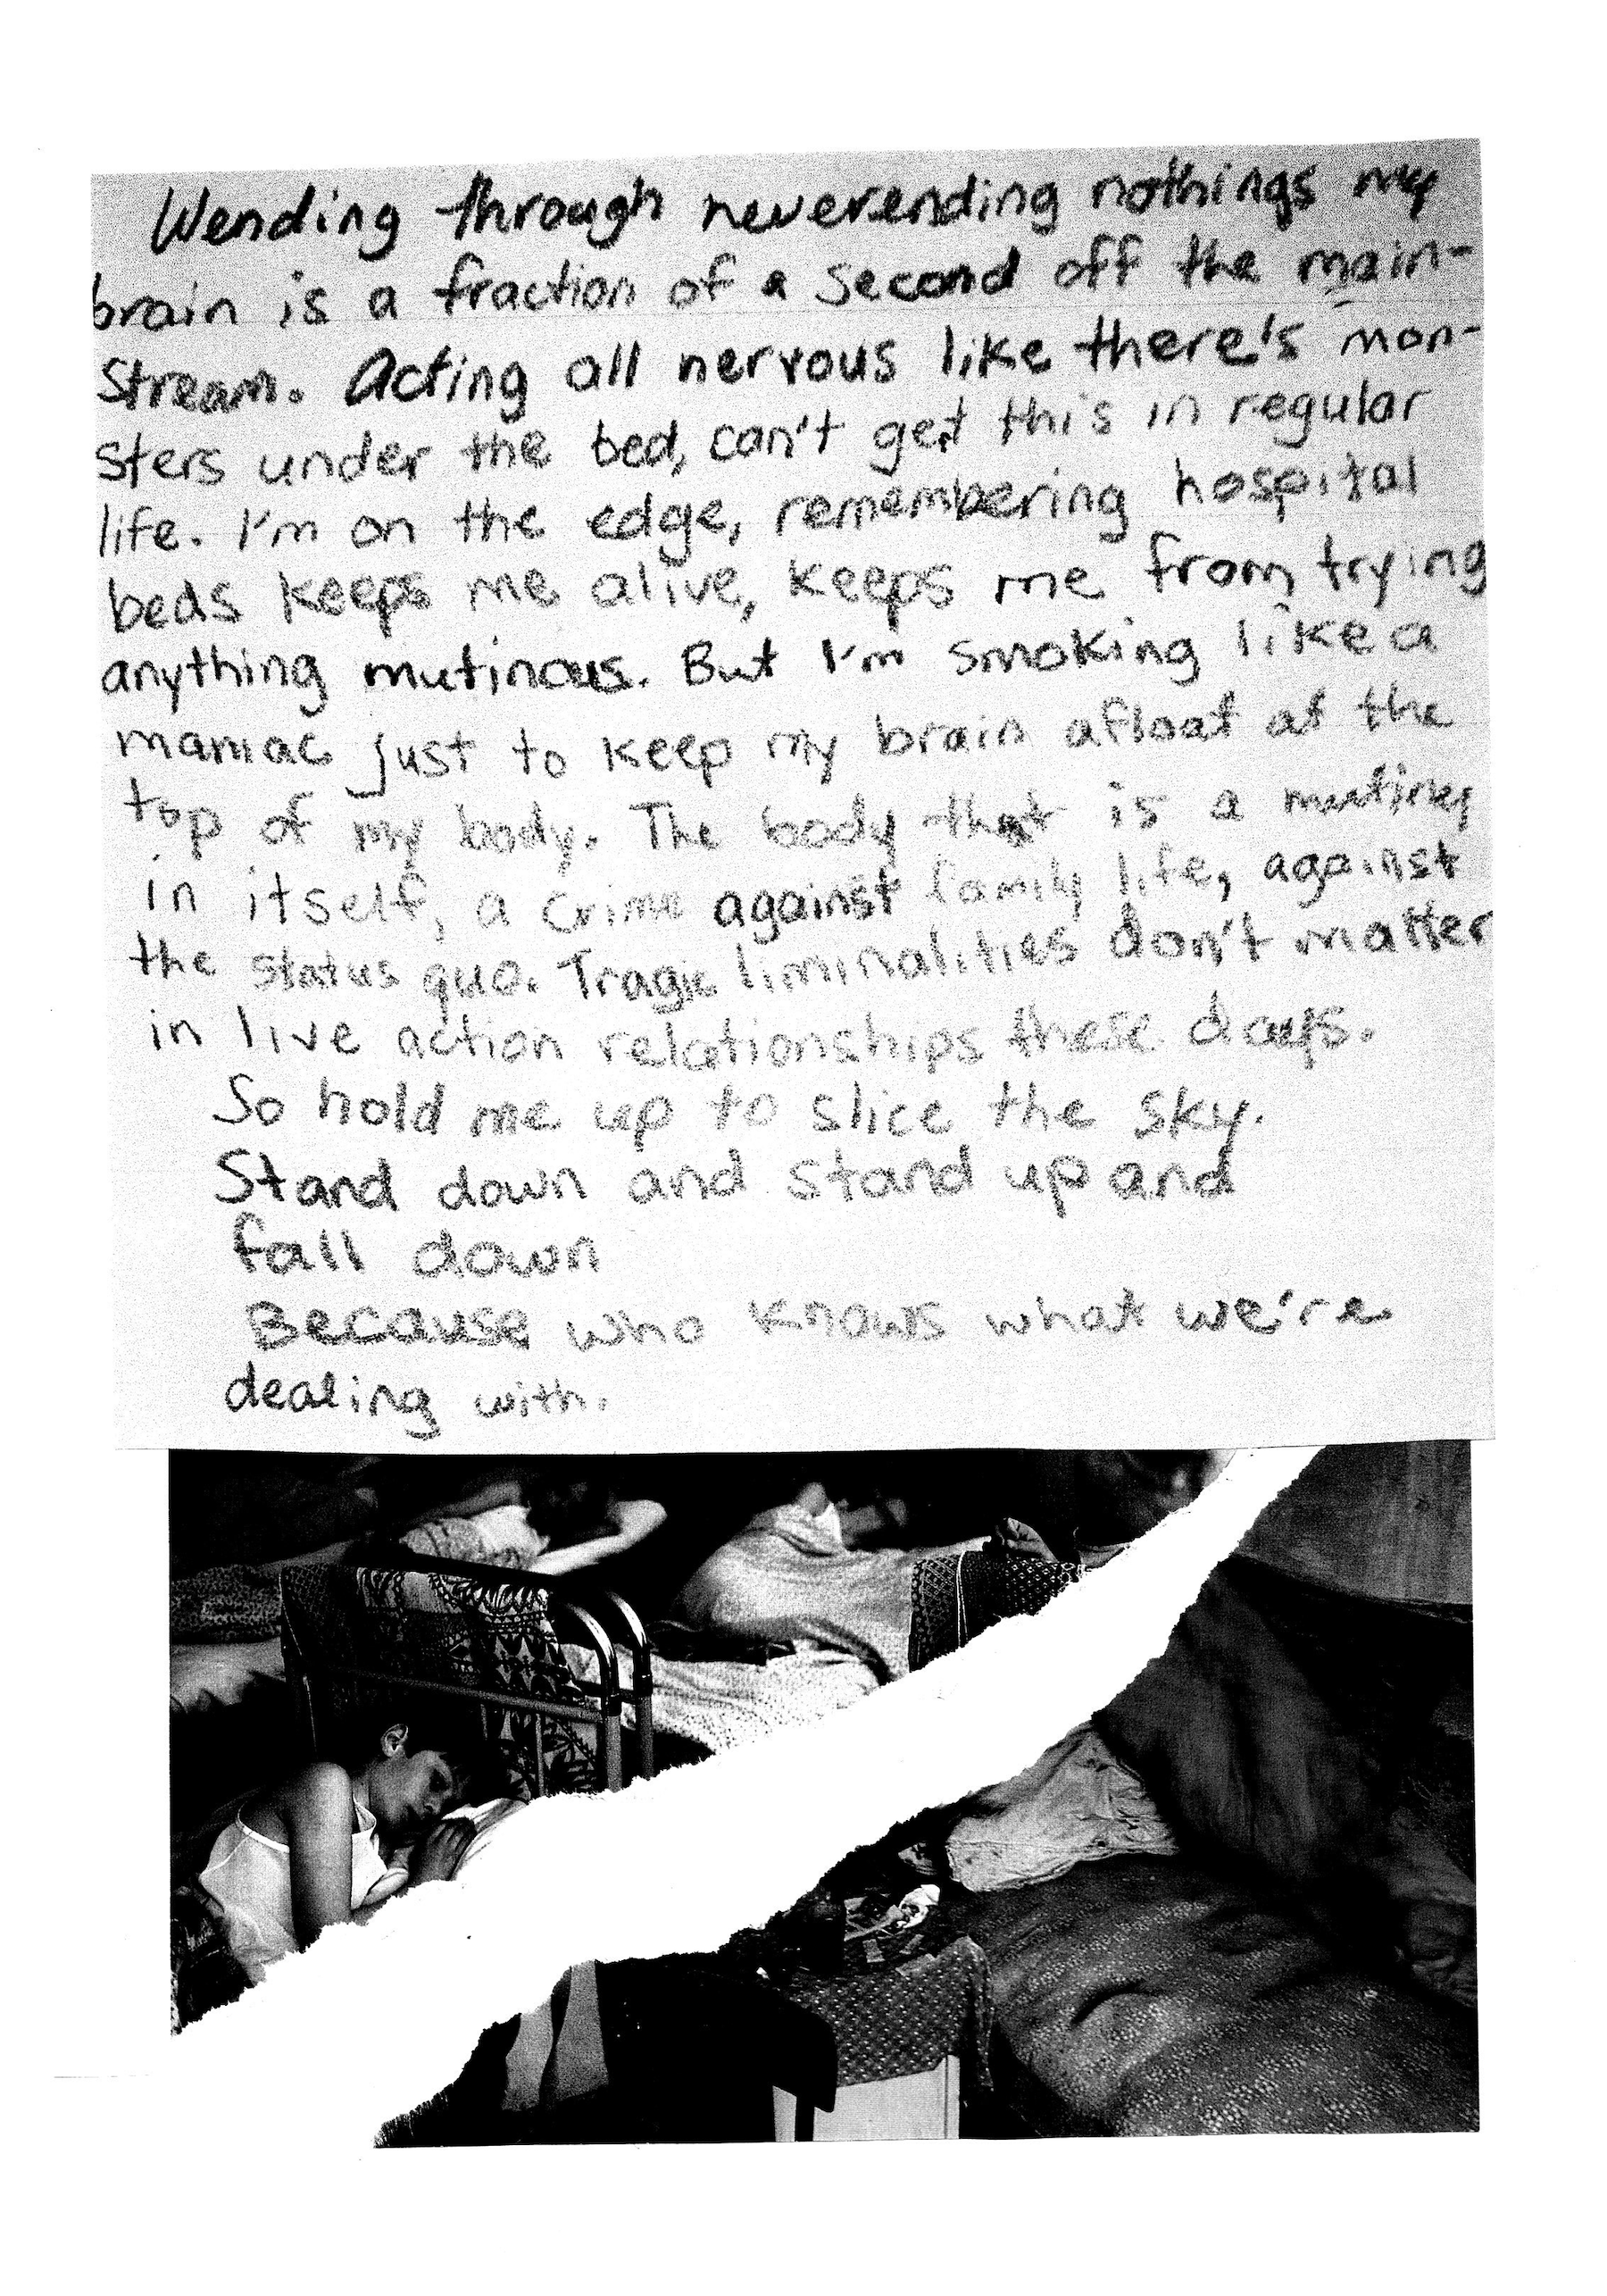 Wending through neverending nothings my
brain is a fraction of a second off the main-
stream. Acting all nervous like there's mon-
sters under the bed, can't get this in regular
life. I'm on the edge, remembering hospital
beds keeps me alive, keeps me from trying
anything mutinous. But I'm smoking like a
maniac just to keep my brain afloat at the
top of my body. The body that is a mutiny
in itself, a crime against family life, against
the status quo. Tragic liminalities don't matter
in live action relationships these days.
So hold me up to slice the sky.
Stand down and stand up and
fall down
Because who knows what we're
dealing with.